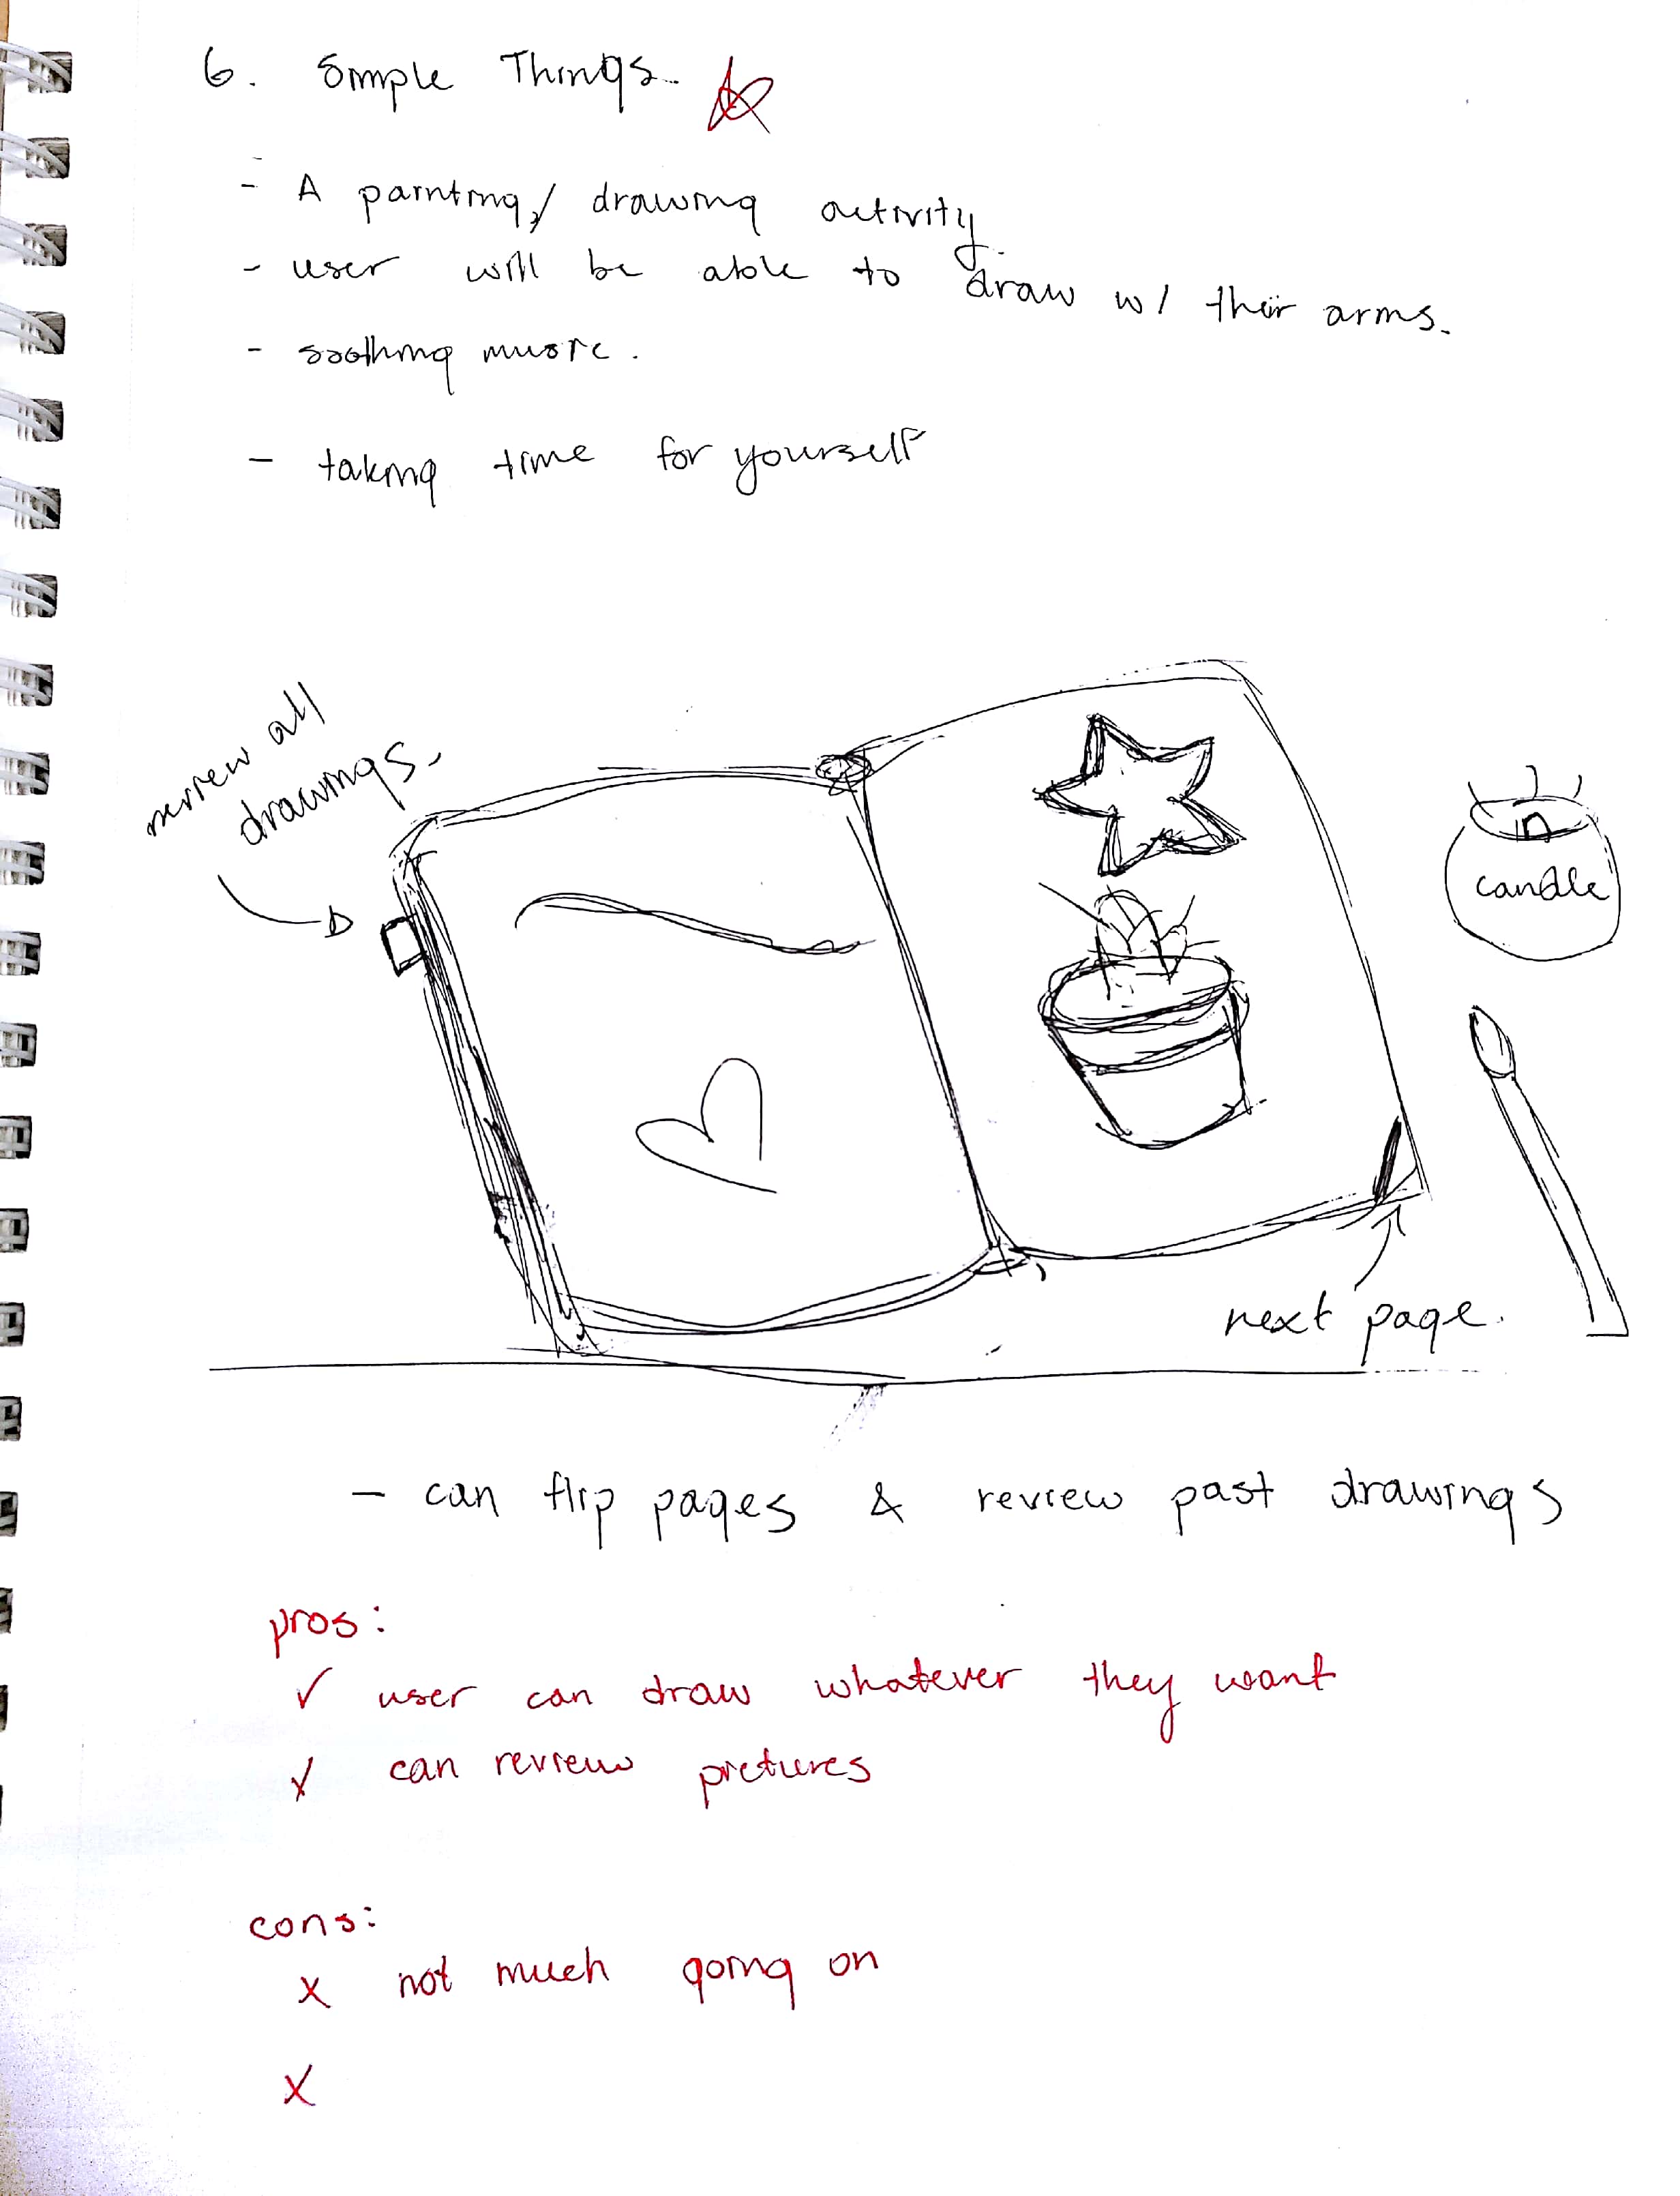 6. Simple Things
- A painting/ drawing activity.
- user will be able to draw w/ their arms.
- soothing music.
- taking time for yourself
review all
drawings.
candle
next page.
- can flip pages & review past drawings
pros:
✓ user can draw whatever they want
✓ can review pictures
cons:
x not much going on
x